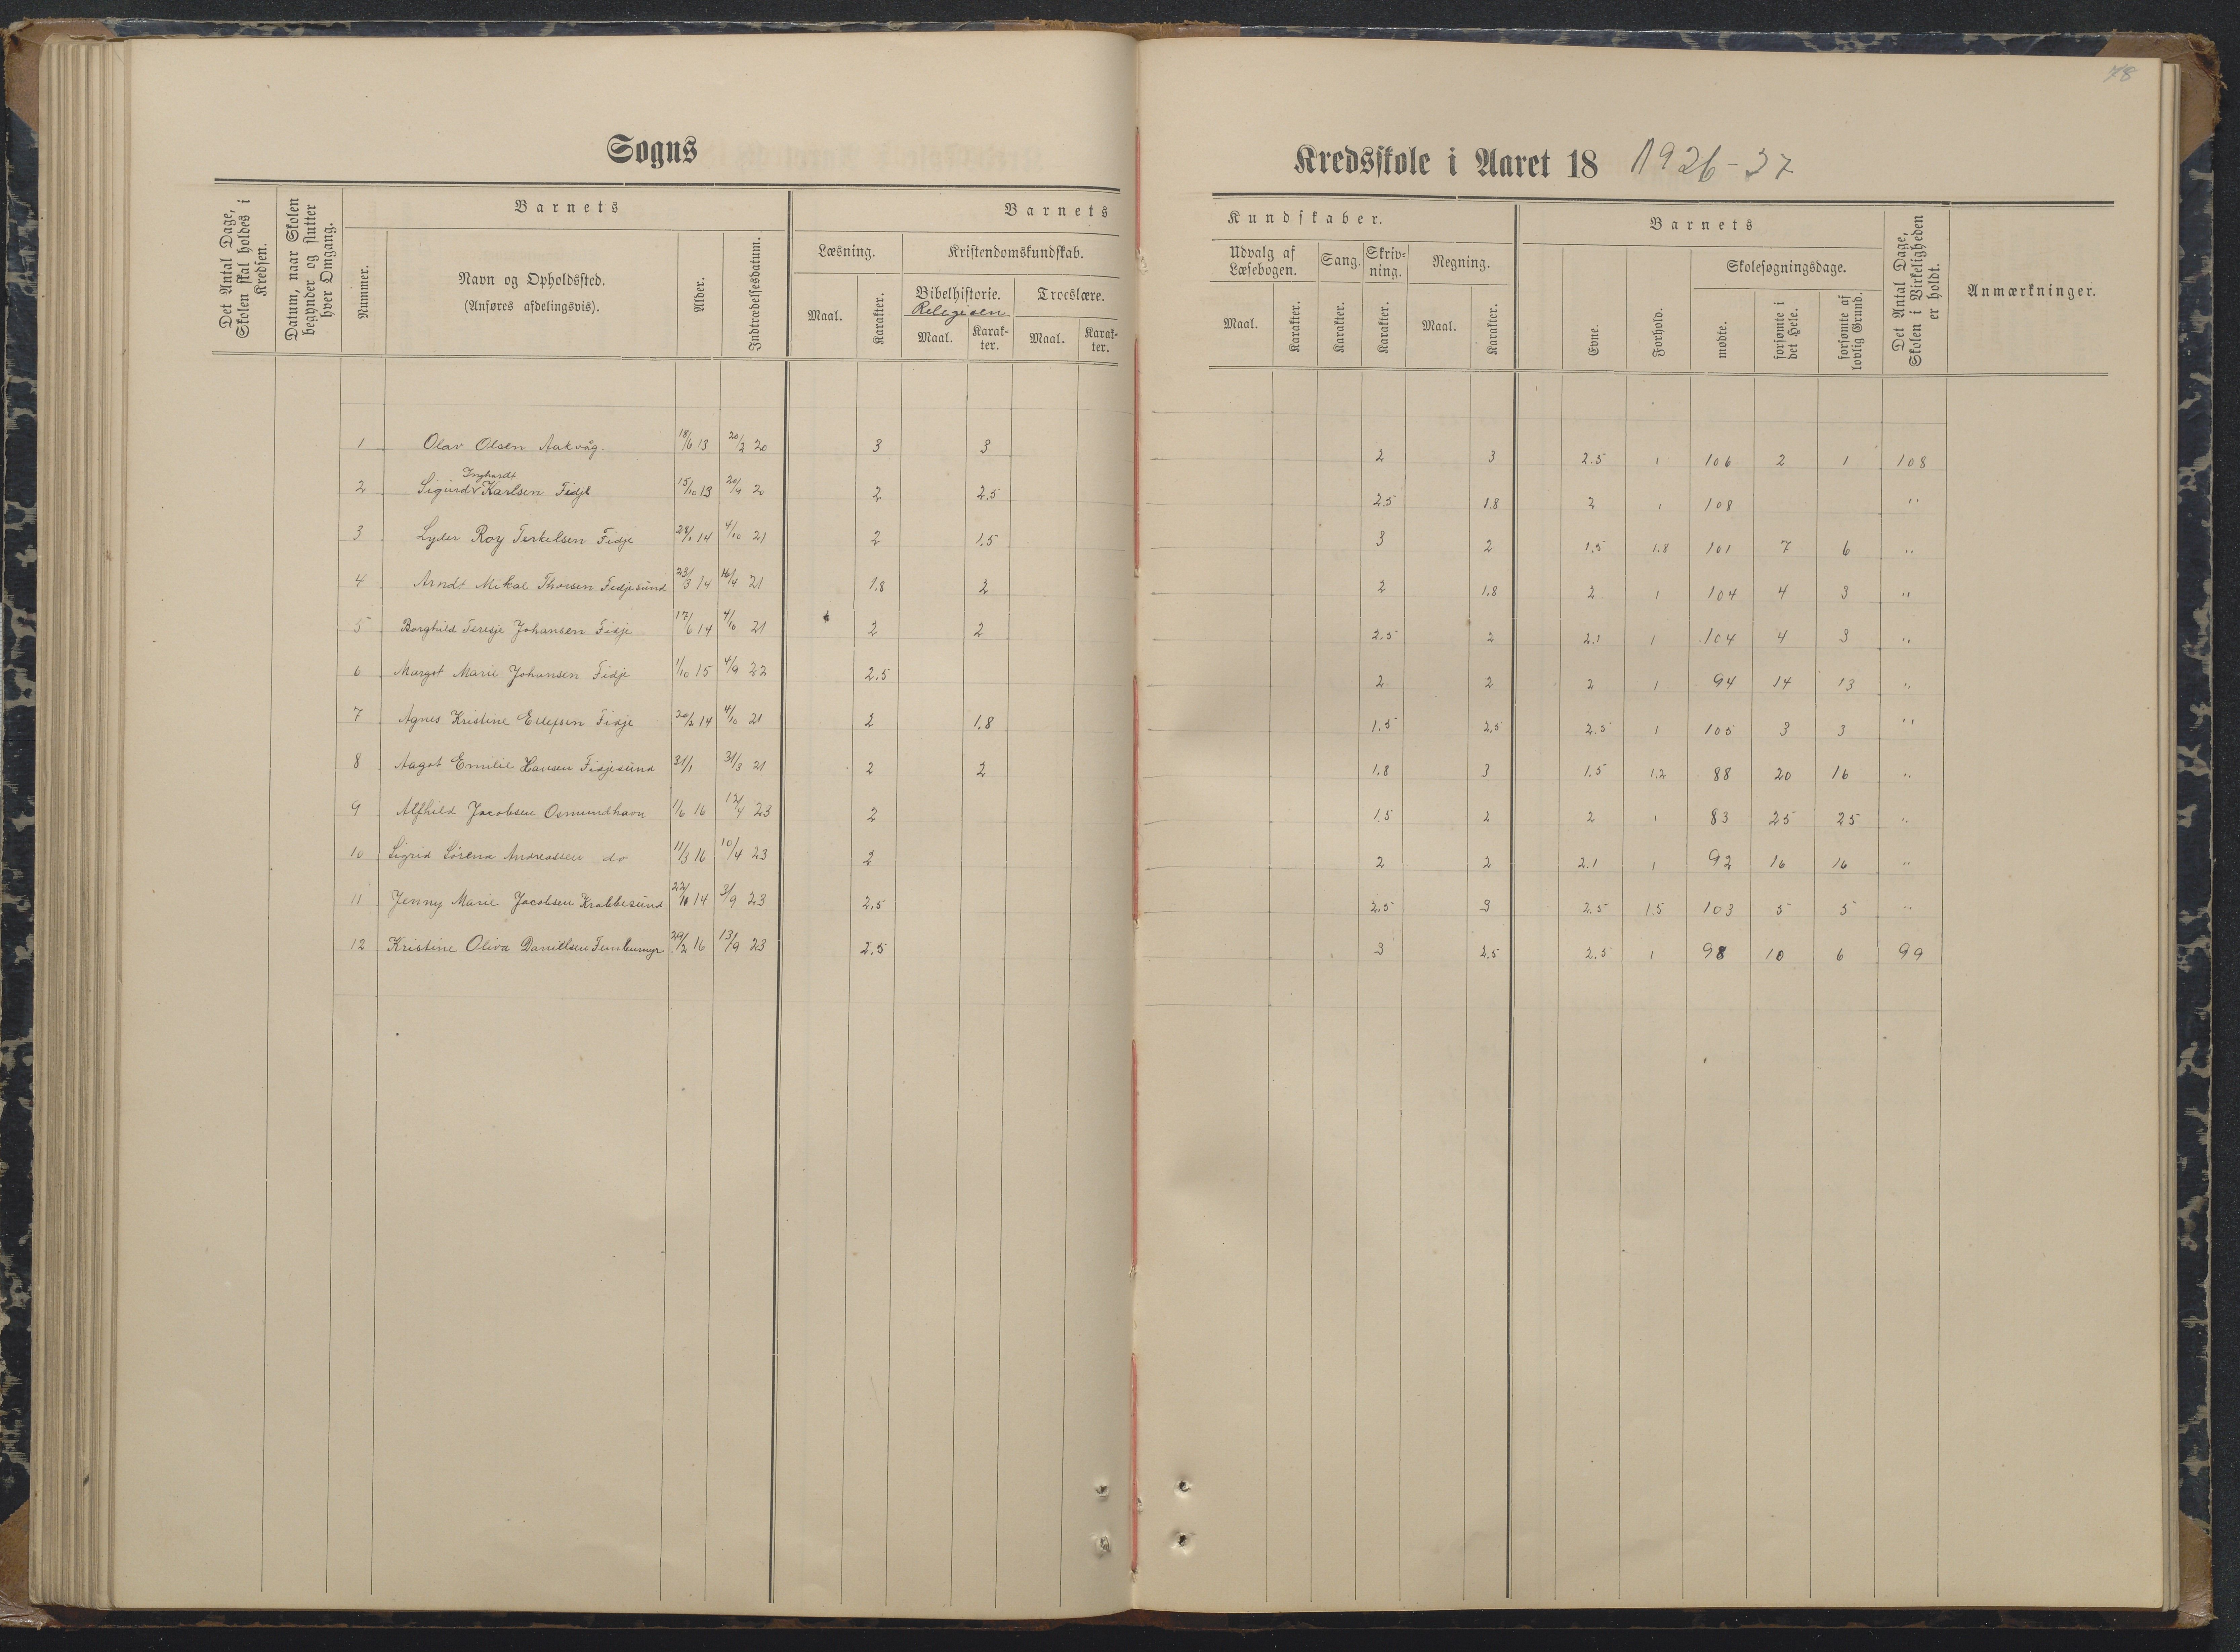 78
Sogns
Kredsskole i Aaret 18 1926-37
Det Antal Dage, Skolen skal holdes i Kredsen.
Datum, naar Skolen begynder og slutter hver Omgang.
Barnets
Nummer.
Navn og Opholdssted.
(Anføres afdelingsvis).
Alder.
Indtrædelsesdatum.
Barnets
Læsning.
Kristendomskundskab.
Maal.
Karakter.
Bibelhistorie.
Religion
Troeslære.
Maal.
Karakter.
Maal.
Karakter.
Kundskaber.
Udvalg af Læsebogen.
Sang.
Skrivning.
Regning.
Maal.
Karakter.
Karakter.
Karakter.
Maal.
Karakter.
Barnets
Evne.
Forhold.
Skolesøgningsdage.
mødte.
forsømte i det Hele.
forsømte af lovlig Grund.
Det Antal Dage, Skolen i Virkeligheden er holdt.
Anmærkninger.
1 Olav Olsen Aakvåg. 18/6 13 20/2 20 3 3 2 3 2.5 1 106 2 1 108
Inghardt
2 Sigurd Karlsen Fidje 15/10 13 20/4 20 2 2.5 2.5 1.8 2 1 108 "
3 Lyder Roy Terkelsen Fidje 28/1 14 4/10 21 2 1.5 3 2 1.5 1.8 101 7 6 "
4 Arndt Mikal Thorsen Fidjesund 23/3 14 16/4 21 1.8 2 2 1.8 2 1 104 4 3 "
5 Borghild Teresje Johansen Fidje 17/6 14 4/10 21 2 2 2.5 2 2.1 1 104 4 3 "
6 Margot Marie Johansen Fidje 1/10 15 4/9 22 2.5 2 2 2 1 94 14 13 "
7 Agnes Kristine Ellefsen Fidje 20/2 14 4/10 21 2 1.8 1.5 2.5 2.5 1 105 3 3 "
8 Aagot Emilie Hansen Fidjesund 31/1 31/3 21 2 2 1.8 3 1.5 1.2 88 20 16 "
9 Alfhild Jacobsen Osmundhavn 1/6 16 12/4 23 2 1.5 2 2 1 83 25 25 "
10 Sigrid Sørena Andreassen do 11/3 16 10/4 23 2 2 2 2.1 1 92 16 16 "
11 Jenny Marie Jacobsen Krabbesund 22/10 14 3/9 23 2.5 2.5 3 2.5 1.5 103 5 5 "
12 Kristine Oliva Danielsen 29/2 16 13/9 23 2.5 3 2.5 2.5 1 98 10 6 99